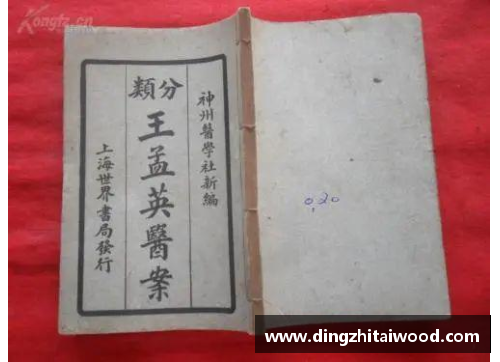 Kongfz.cn
神州醫學社新編
分類
王孟英醫案
上海世界書局發行
0.20
www.dingzhitaiwood.com